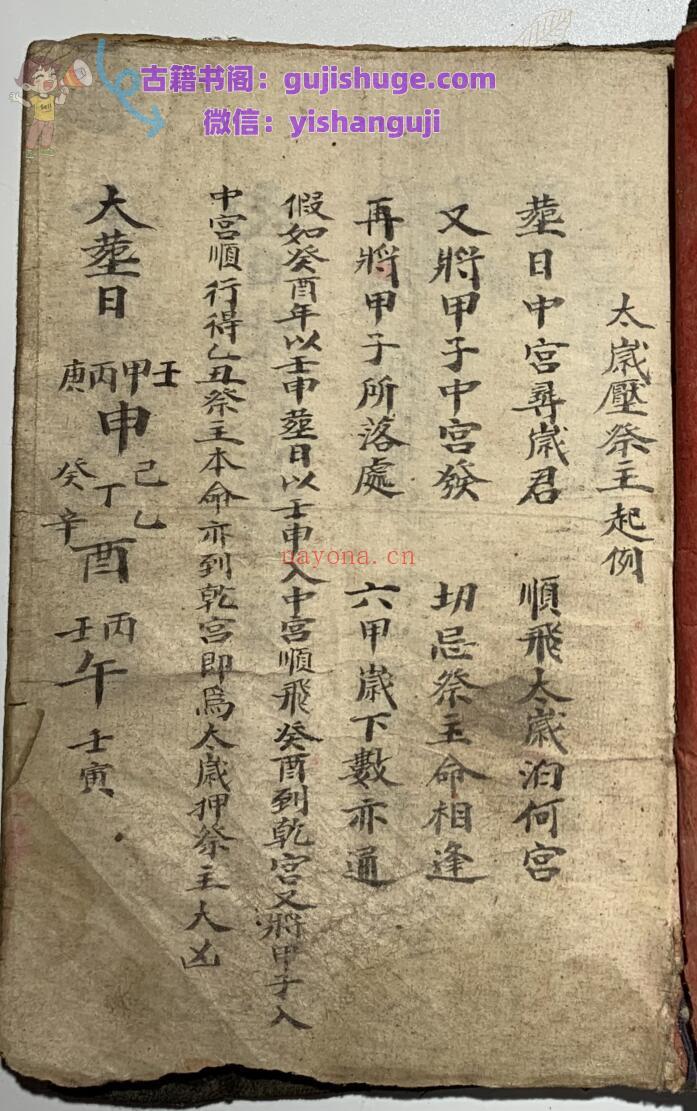 古籍书阁：gujishuge.com
微信：yishanguji
太歲壓祭主起例
塟日中宮尋歲君 順飛太歲泊何宮
又將甲子中宮發 切忌祭主命相逢
再將甲子所落處 六甲歲下數亦通
假如癸酉年以壬申塟日以壬申入中宮順飛癸酉到乾宮又將甲子入
中宮順行得乙丑祭主本命亦到乾宮即爲太歲押祭主大凶
大塟日 壬甲丙庚申 己乙丁癸辛酉 丙壬午 壬寅
nayona.cn